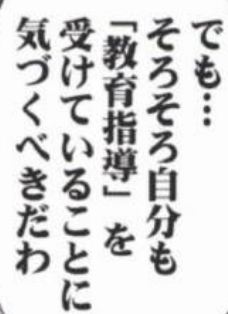 でも…
そろそろ自分も
「教育指導」を
受けていることに
気づくべきだわ